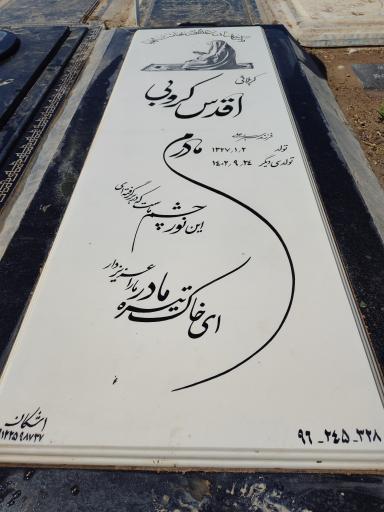 کربلائی
اقدس کروبی
فرزند
مادرم
تولد ۱۳۲۷٫۱٫۲
تولدی دیگر ۱۴۰۲٫۹٫۲۴
این نور چشم ماست که در بر گرفته‌ای
ای خاک تیره مادر ما را عزیز دار
اشکان
۹۶_۲۴۵_۳۲۸